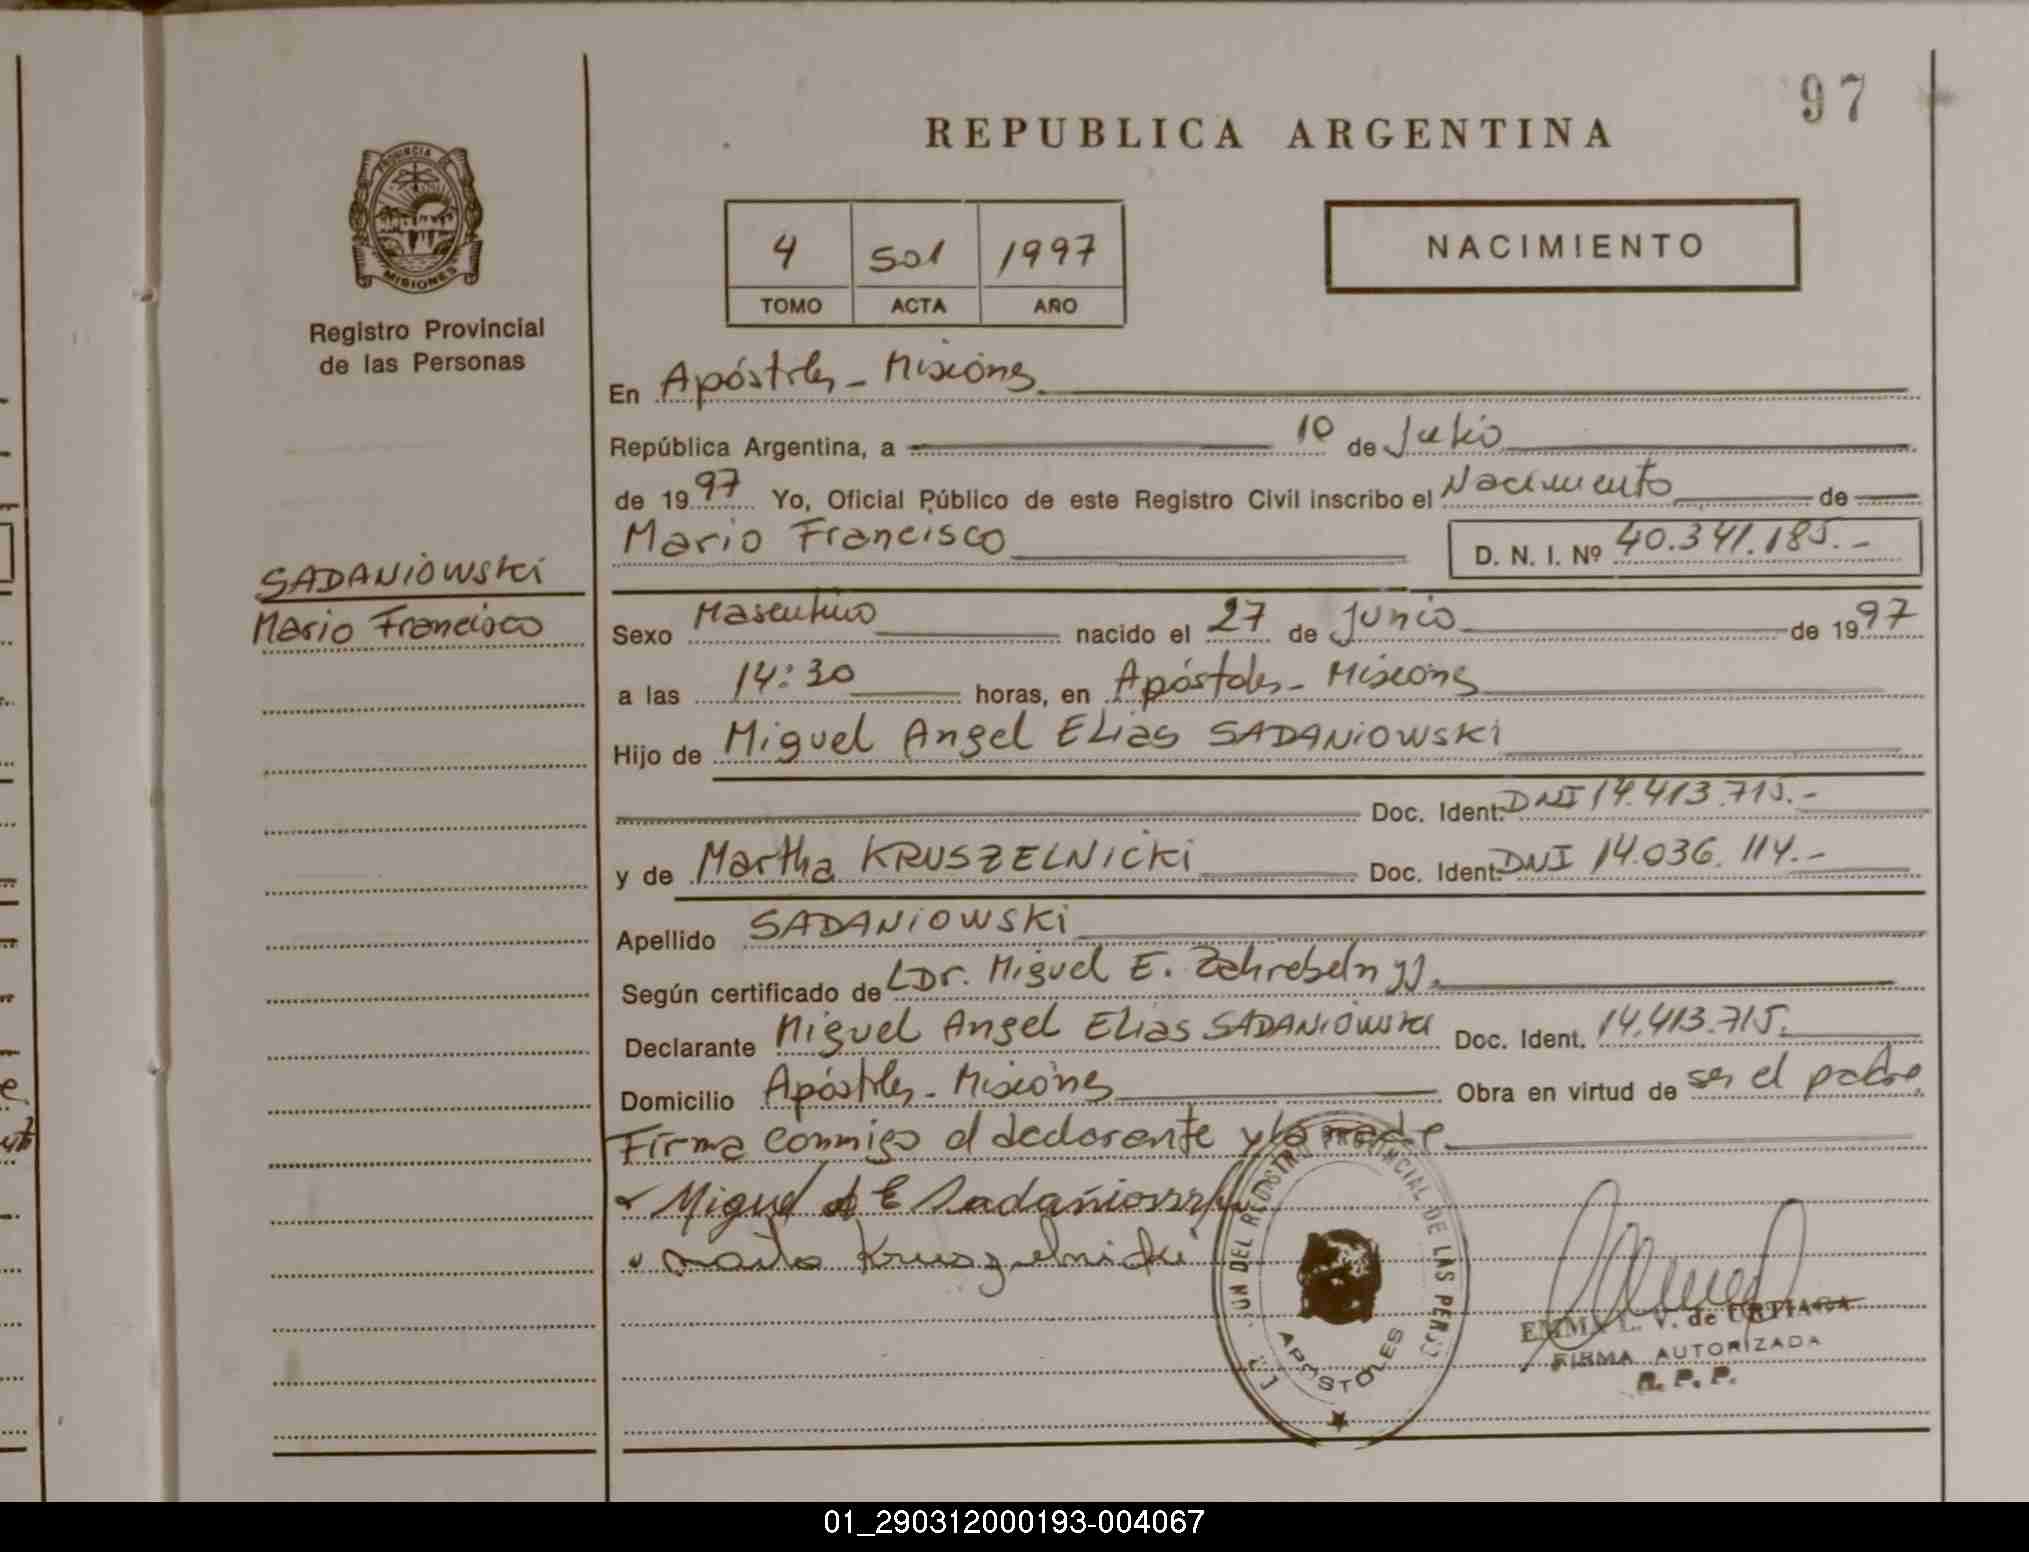 97
REPUBLICA ARGENTINA
PROVINCIA DE
MISIONES
Registro Provincial
de las Personas
4 501 1997
TOMO ACTA AÑO
NACIMIENTO
En Apóstoles - Misiones
República Argentina, a 10 de Julio
de 1997 Yo, Oficial Público de este Registro Civil inscribo el Nacimiento de
Mario Francisco D. N. I. Nº 40.341.185.-
SADANIOWSKI
Mario Francisco
Sexo Masculino nacido el 27 de Junio de 1997
a las 14:30 horas, en Apóstoles - Misiones
Hijo de Miguel Angel Elias SADANIOWSKI
Doc. Ident. DNI 14.413.715.-
y de Martha KRUSZELNICKI Doc. Ident. DNI 14.036.114.-
Apellido SADANIOWSKI
Según certificado de Dr. Miguel E.
Declarante Miguel Angel Elias SADANIOWSKI Doc. Ident. 14.413.715.
Domicilio Apóstoles - Misiones Obra en virtud de ser el padre
Firma conmigo el declarante y la madre
Miguel A E Sadañiowski
Marta Kruszelnicki
DEL REGISTRO PROVINCIAL DE LAS PERS
APOSTOLES
EMMA L. V. de URTIAGA
FIRMA AUTORIZADA
R. P. P.
01_290312000193-004067